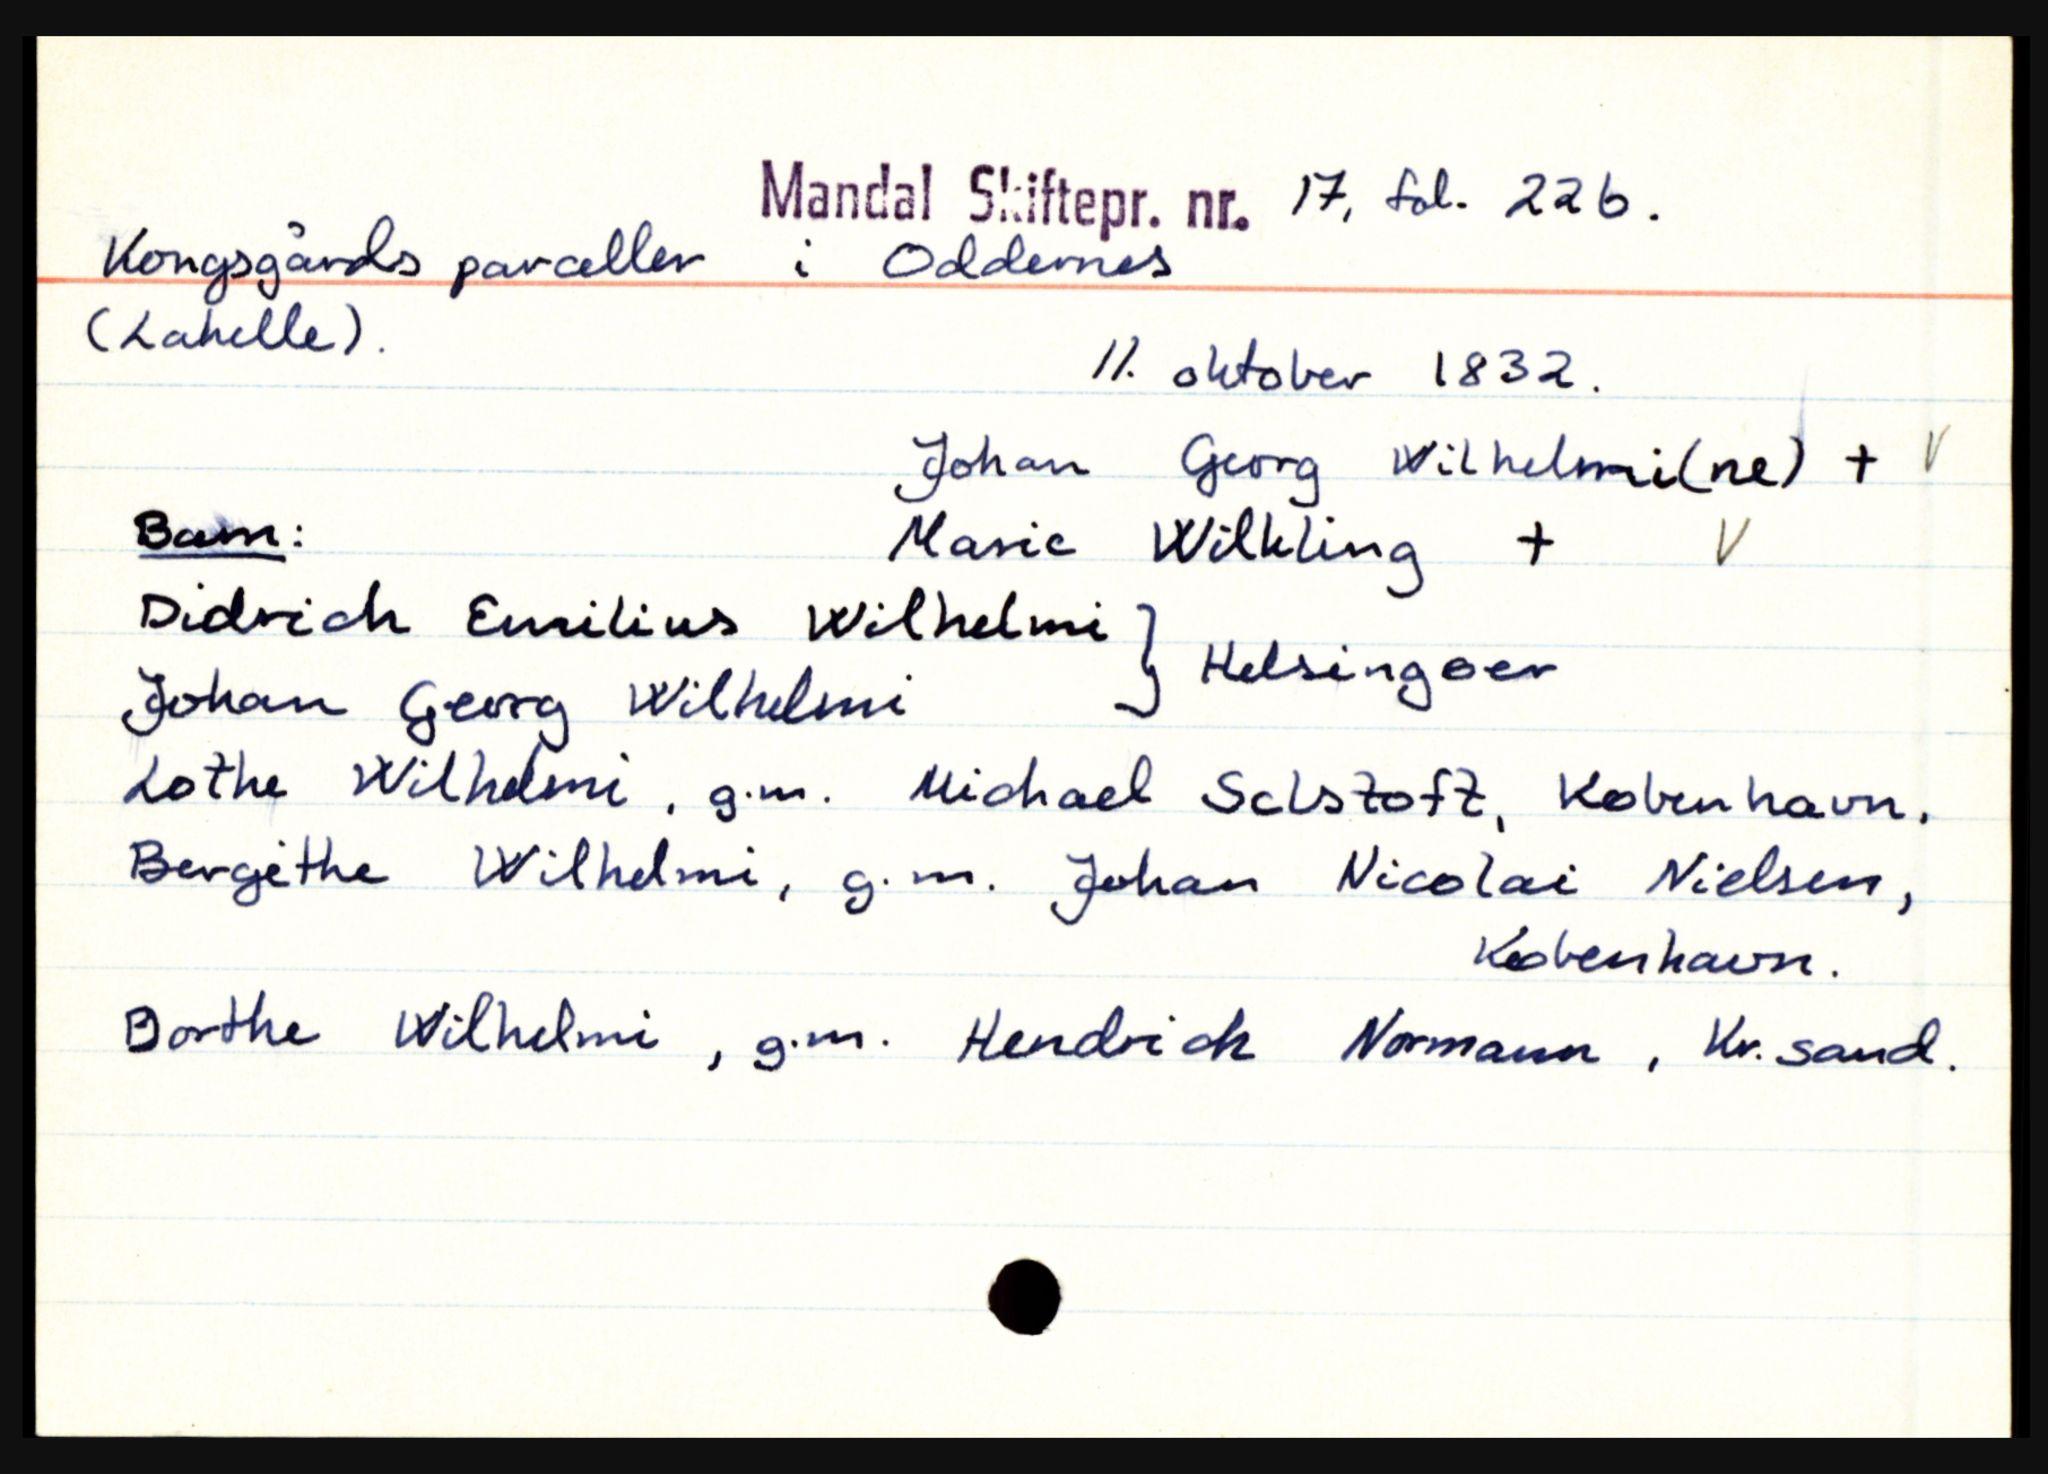 Mandal Skiftepr. nr. 17, fol. 226.
Kongsgårds parceller i Oddernes
(Lahelle).
11. oktober 1832.
Johan Georg Wilhelmi(ne) + V
Barn:
Marie Wilkling + V
Didrich Emilius Wilhelmi
Johan Georg Wilhelmi } Helsingoer
Lothe Wilhelmi, g.m. Michael Selstoft, København.
Bergithe Wilhelmi, g.m. Johan Nicolai Nielsen,
København.
Dorthe Wilhelmi, g.m. Hendrich Normann, Kr.sand.